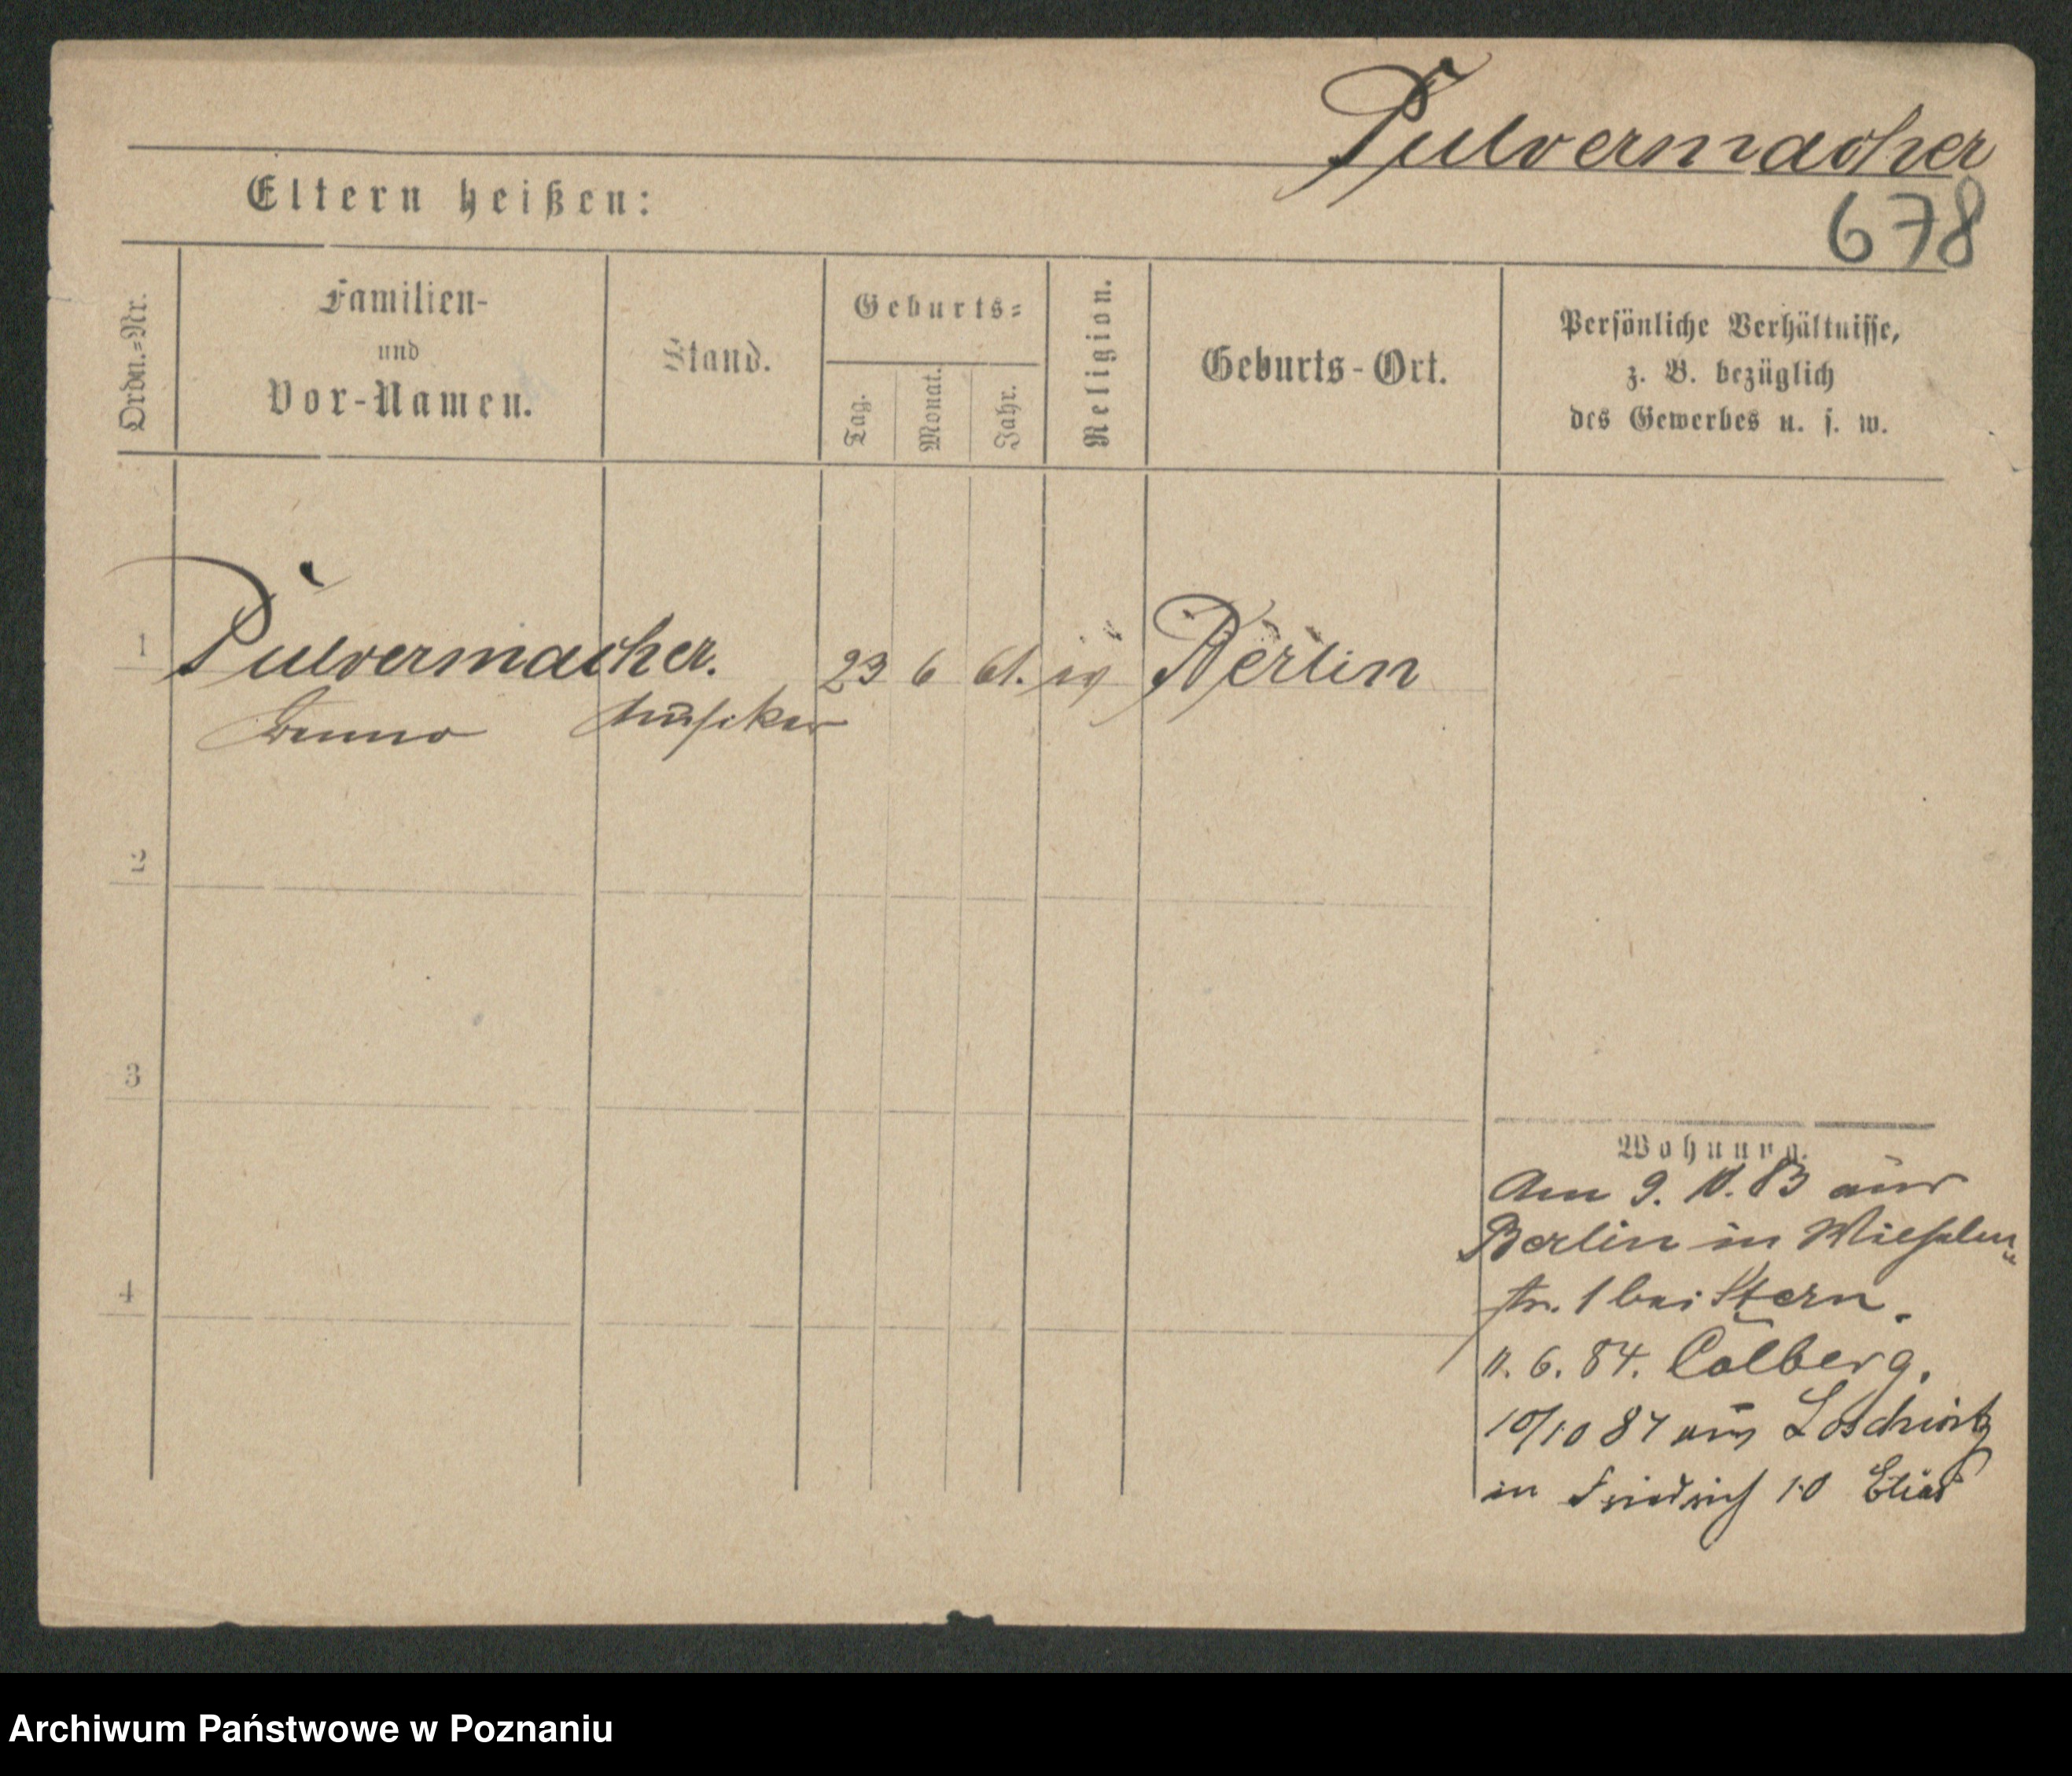 Pulvermacher
678
Eltern heißen:
Ordn.=Nr.
Familien-
und
Vor-Namen.
Stand.
Geburts=
Tag.
Monat.
Jahr.
Religion.
Geburts-Ort.
Persönliche Verhältnisse,
z. B. bezüglich
des Gewerbes u. s. w.
1 Pulvermacher. 23 6 61. Berlin
Musiker
2
3
4
Wohnung.
Am 9. 10. 83 aus
Berlin in
str. 1 bei Stern.
11. 6. 84. Colberg.
10/10 87 aus
in Friedrich 10 Elias
Archiwum Państwowe w Poznaniu